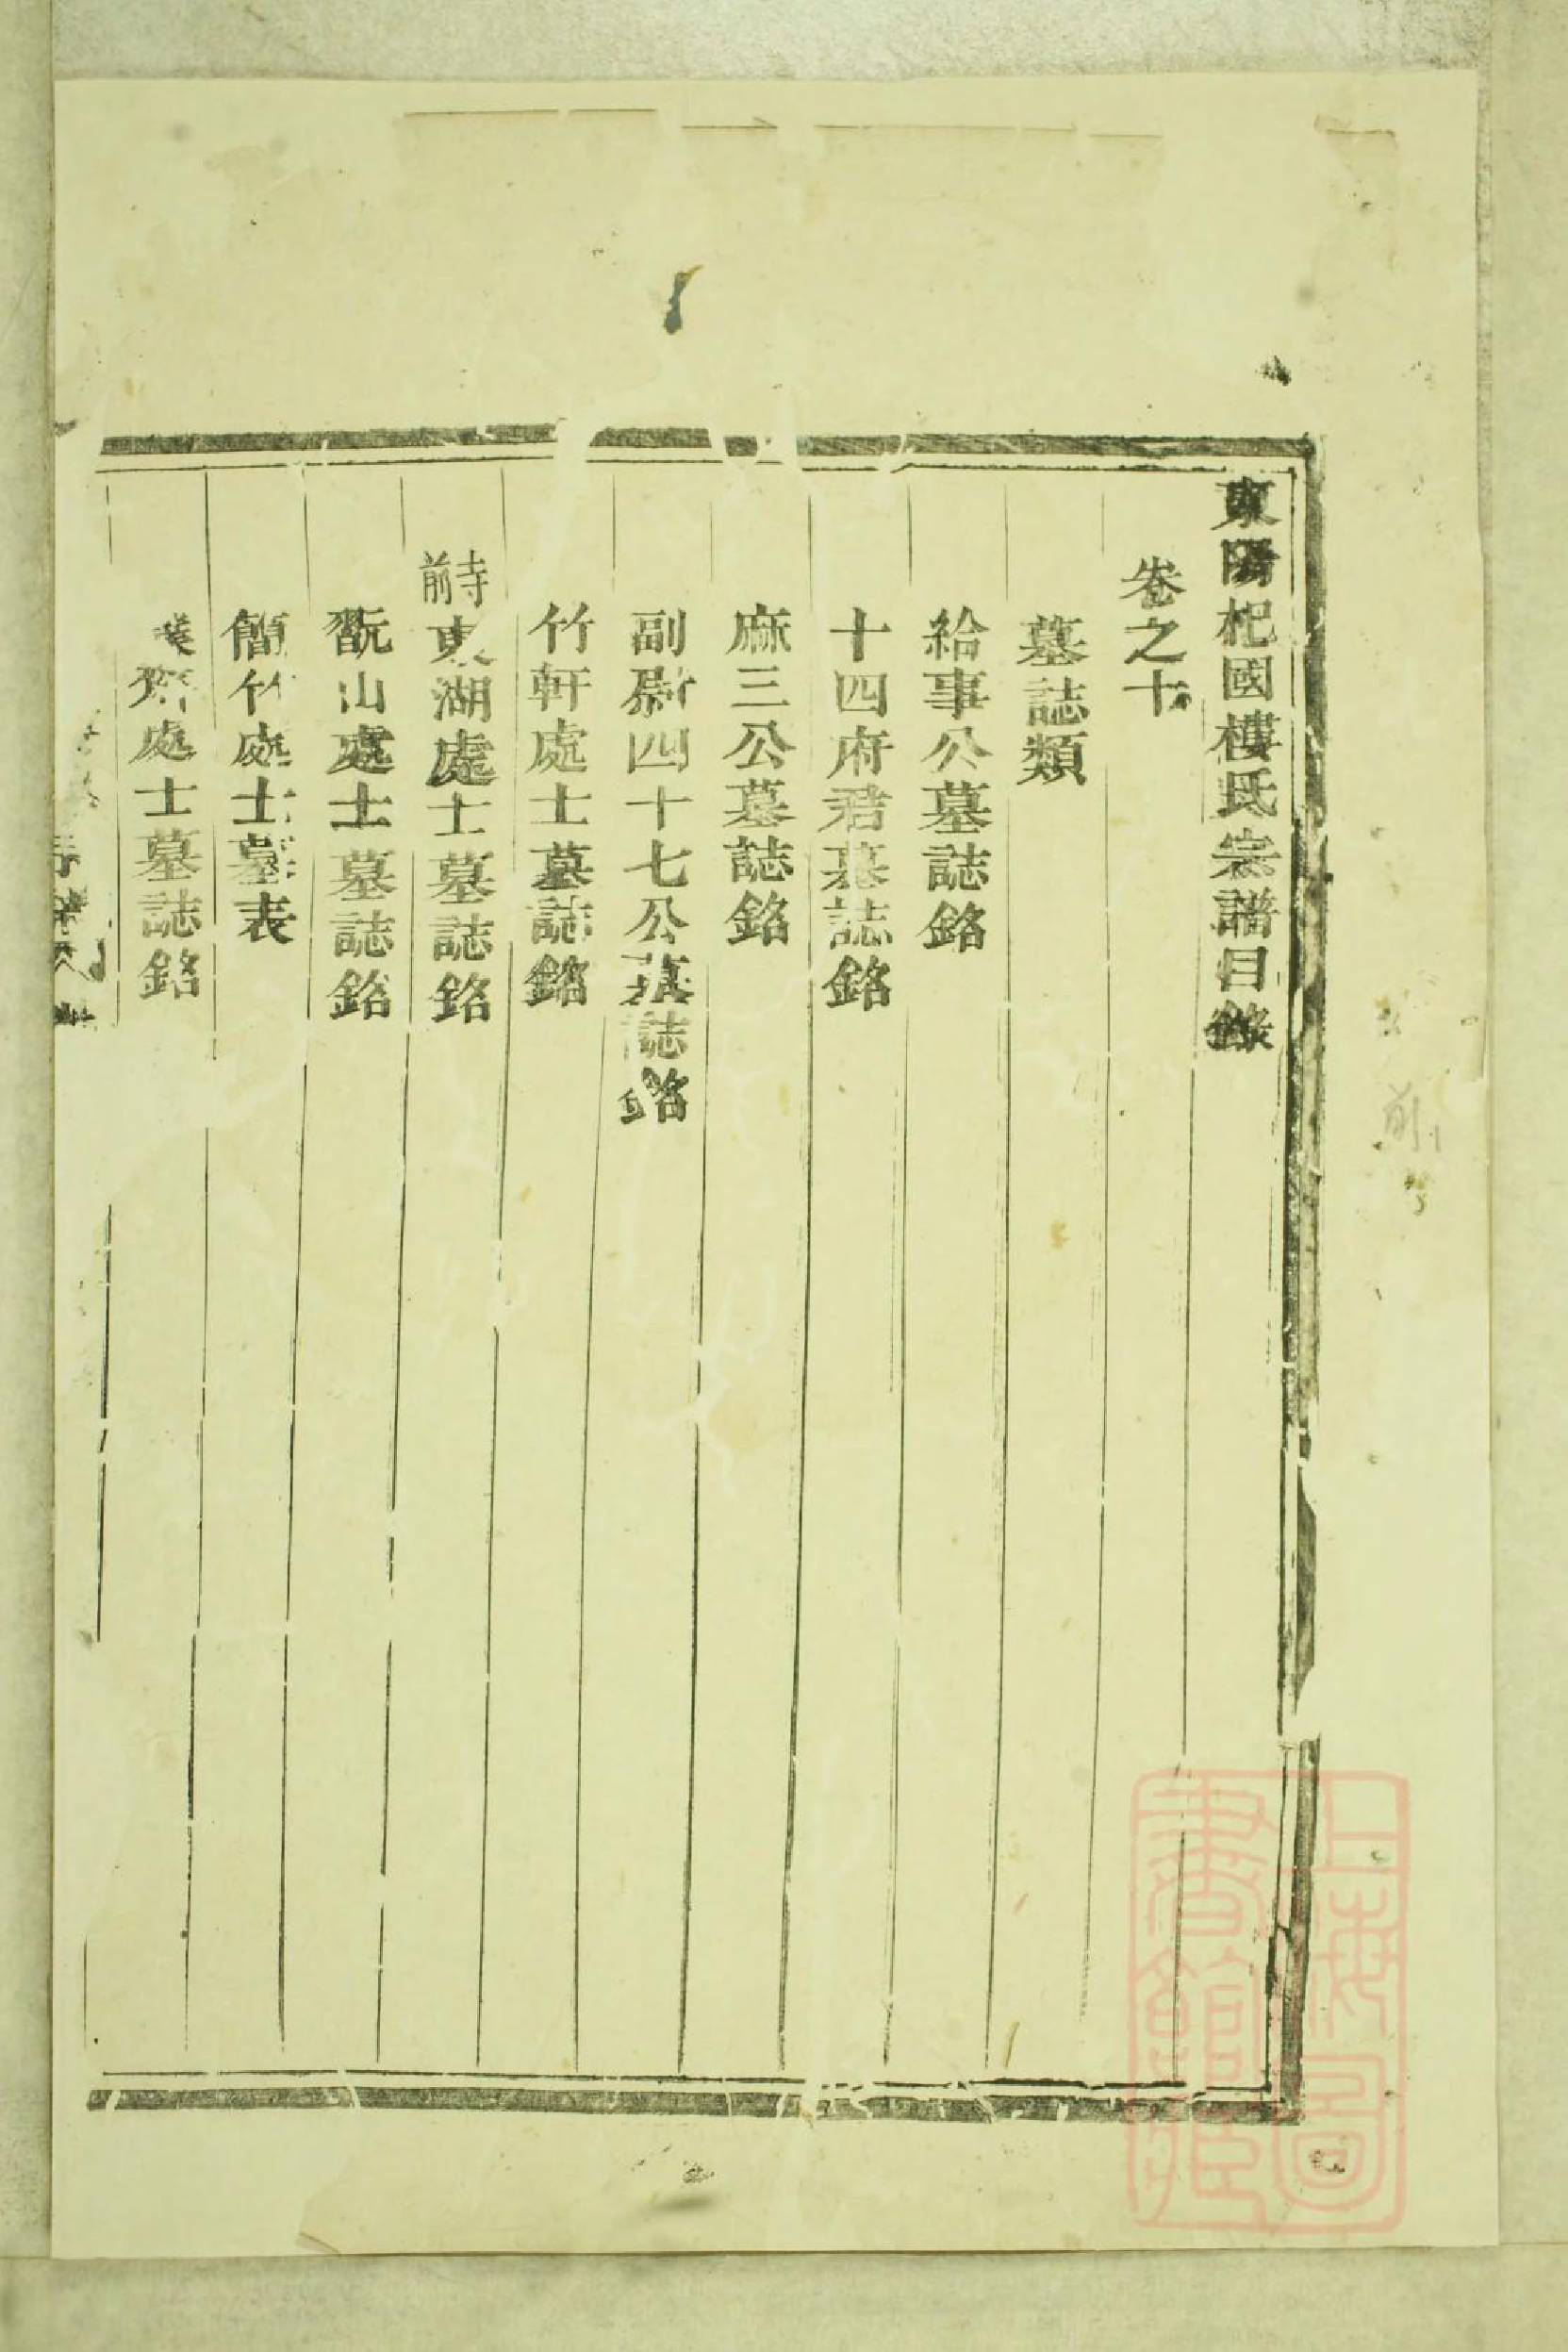 東陽杞國樓氏宗譜目錄
卷之十
墓誌類
給事公墓誌銘
十四府君墓誌銘
麻三公墓誌銘
副尉四十七公墓誌銘
竹軒處士墓誌銘
寺前東湖處士墓誌銘
翫山處士墓誌銘
簡竹處士墓表
齋處士墓誌銘
上海圖書館藏